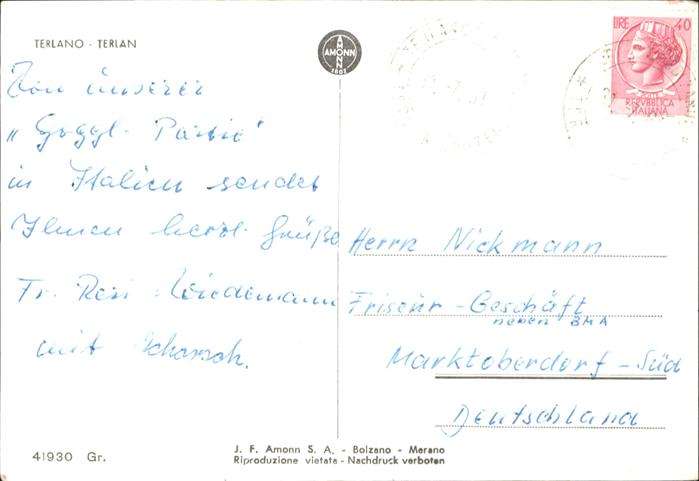 TERLANO - TERLAN
AMONN
AMONN
1802
LIRE 40
REPVBBLICA
ITALIANA
Von unserer
„Goggl-Partie"
in Italien sendet
Ihnen herzl. Grüße
Fr. Resi Wiedemann
mit Schorsch.
Herrn Nickmann
Friseur-Geschäft
neben BMA
Marktoberdorf-Süd
Deutschland
41930 Gr.
J. F. Amonn S. A. - Bolzano - Merano
Riproduzione vietata - Nachdruck verboten